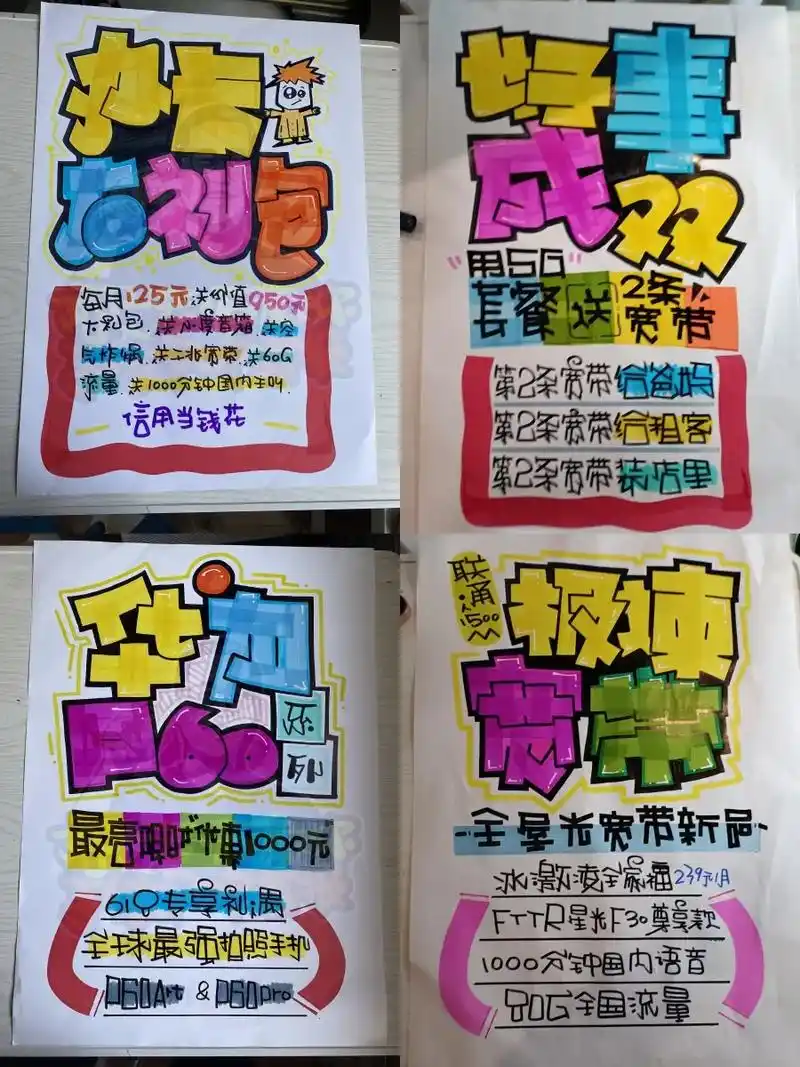 办卡
礼包
每月125元送价值950元
大礼包.送小度音箱.送空
气炸锅.送千兆宽带.送60G
流量.送1000分钟国内主叫.
信用当钱花
好事
成双
"用5G"
套餐送2条宽带!
第2条宽带给爸妈
第2条宽带给租客
第2条宽带装店里
华为
P60系列
最高优惠1000元
618专享礼遇
全球最强拍照手机
P60Art & P60pro
联通
极速
宽带
全星光宽带新品
冰激凌全家福239元/月
FTTR星光F30尊享款
1000分钟国内语音
80G全国流量